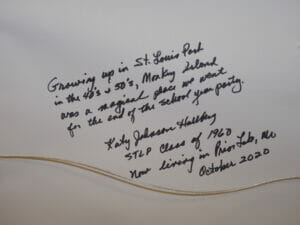 Growing up in St. Louis Park
in the 40's & 50's, Monkey Island
was a magical place we went
for the end of the school year party.
Katy Johnson
STLP Class of 1960
Now living in Prior Lake, MN
October 2020